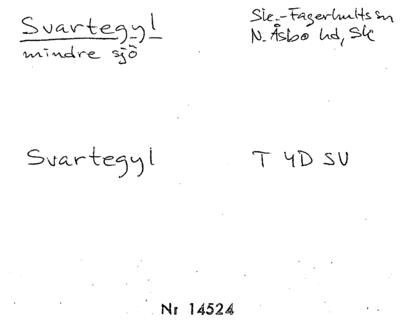 Svartegyl
Sk.-Fagerhults sn
mindre sjö
N. Åsbo hd, Sk
Svartegyl
T 4D SV
Nr 14524